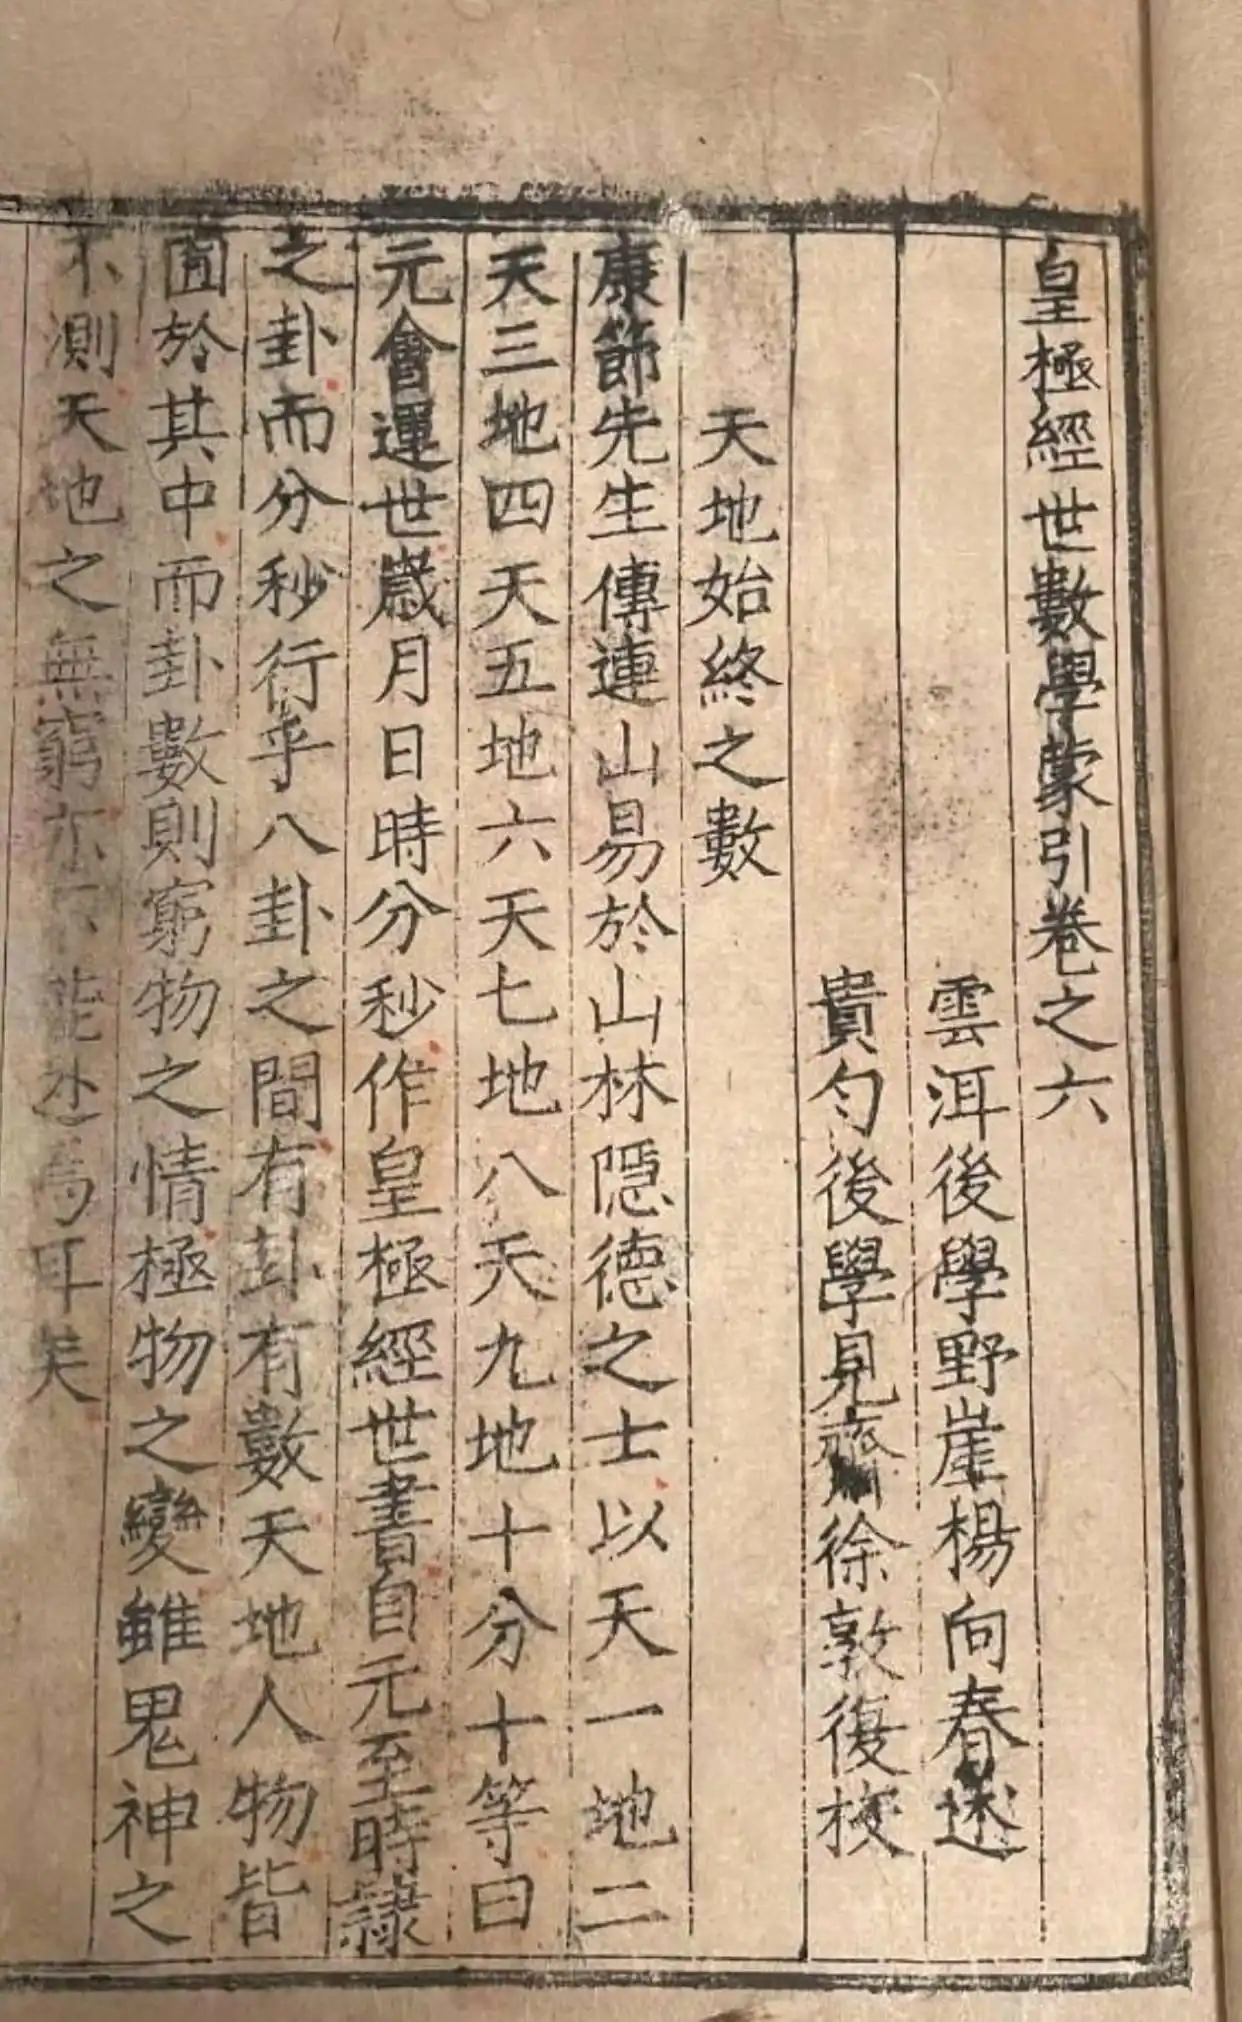 皇極經世數學蒙引卷之六
雲洱後學野崖楊向春述
貴勻後學見齋徐敦復校
天地始終之數
康節先生傳連山易於山林隱德之士以天一地二
天三地四天五地六天七地八天九地十分十等曰
元會運世歲月日時分秒作皇極經世書自元至時隸
之卦而分秒行乎八卦之間有卦有數天地人物皆
囿於其中而卦數則窮物之情極物之變雖鬼神之
不測天地之無窮亦不能逃焉耳矣